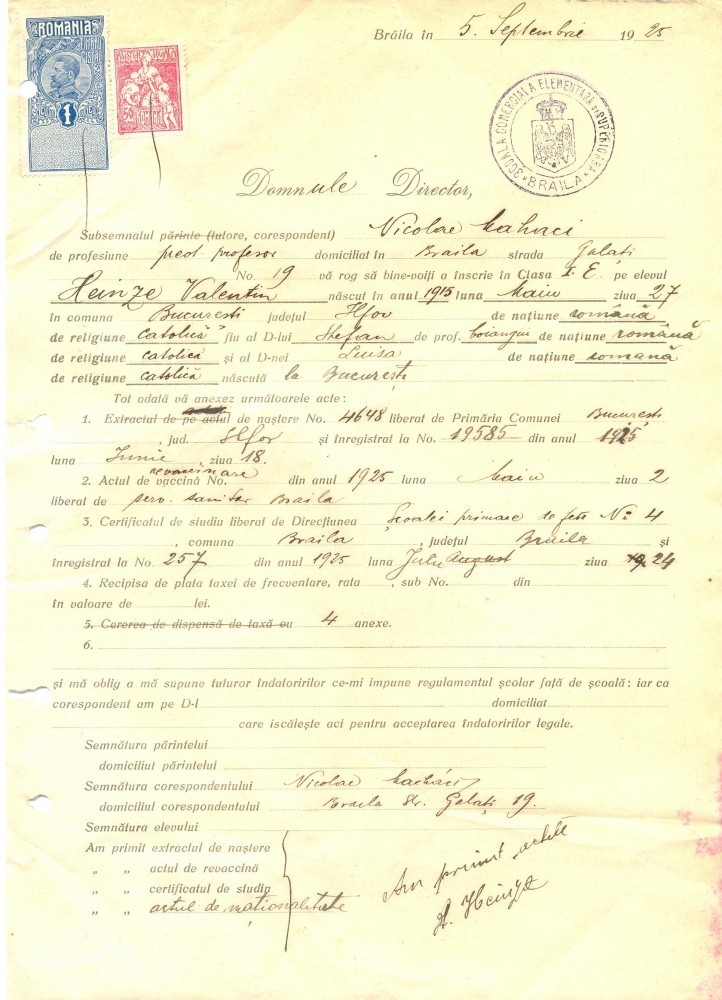 ROMANIA
1
ROMANIA
Brăila în 5. Septembrie 1925
SCOALA COMERCIALA ELEMENTARA SI SUPERIOARA
BRAILA
Domnule Director,
Subsemnatul părinte (tutore, corespondent) Nicolae
de profesiune preot profesor domiciliat în Braila strada Galați
No. 19 vă rog să bine-voiți a înscrie în Clasa I E. pe elevul
Heinze Valentin născut în anul 1915 luna Maiu ziua 27
în comuna București județul Ilfov de națiune română
de religiune catolică fiu al D-lui Stefan de prof. boiangiu de națiune română
de religiune catolică și al D-nei Luisa de națiune română
de religiune catolică născută la București
Tot odată vă anexez următoarele acte:
1. Extractul de pe actul de naștere No. 4648 liberat de Primăria Comunei București
, jud. Ilfov și înregistrat la No. 19585 din anul 1925
luna Iunie ziua 18.
revaccinare
2. Actul de vaccină No. din anul 1925 luna Maiu ziua 2
liberat de serv. sanitar Braila
3. Certificatul de studiu liberat de Direcțiunea Școalei primare de fete No 4
, comuna Braila, județul Braila și
înregistrat la No. 257 din anul 1925 luna Iulu August ziua 24
4. Recipisa de plata taxei de frecventare, rata , sub No. din
în valoare de lei.
5. Cererea de dispensă de taxă cu 4 anexe.
6.
și mă oblig a mă supune tuturor îndatoririlor ce-mi impune regulamentul școlar față de școală: iar ca
corespondent am pe D-l domiciliat
care iscălește aci pentru acceptarea îndatoririlor legale.
Semnătura părintelui
domiciliul părintelui
Semnătura corespondentului Nicolae
domiciliul corespondentului Braila Str. Galați 19.
Semnătura elevului
Am primit extractul de naștere
„ „ actul de revaccină
„ „ certificatul de studiu
„ „ actul de naționalitate
Am primit actele
A. Heinze